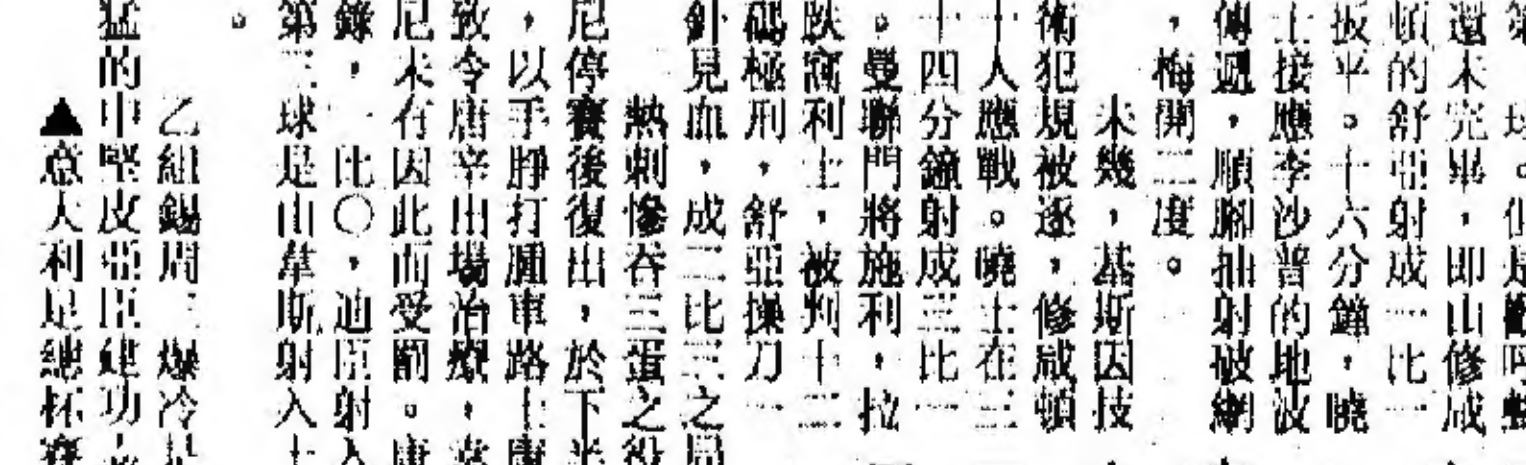 還未完畢，即山修咸
頓的舒亞射成一比一
扳平。十六分鐘，曉
士接應李沙普的地波
傳遞，順腳抽射破網
，梅開二度。
未幾，基斯因技
術犯規被逐，修咸頓
十人應戰。曉士在三
十四分鐘射成三比一
。曼聯門將施利，拉
跌窩利士，被判十二
碼極刑，舒亞操刀一
針見血，成二比三之局
熱刺慘吞三蛋之役
尼停賽後復出，於下半
，以手踭打腫車路士唐
致令唐辛出場治療，幸
尼未有因此而受罰。唐
錄，一比〇，迪臣射入
第三球是由韋斯射入
。
乙組錫周三爆冷
猛的中堅皮亞臣建功
▲意大利足總杯賽